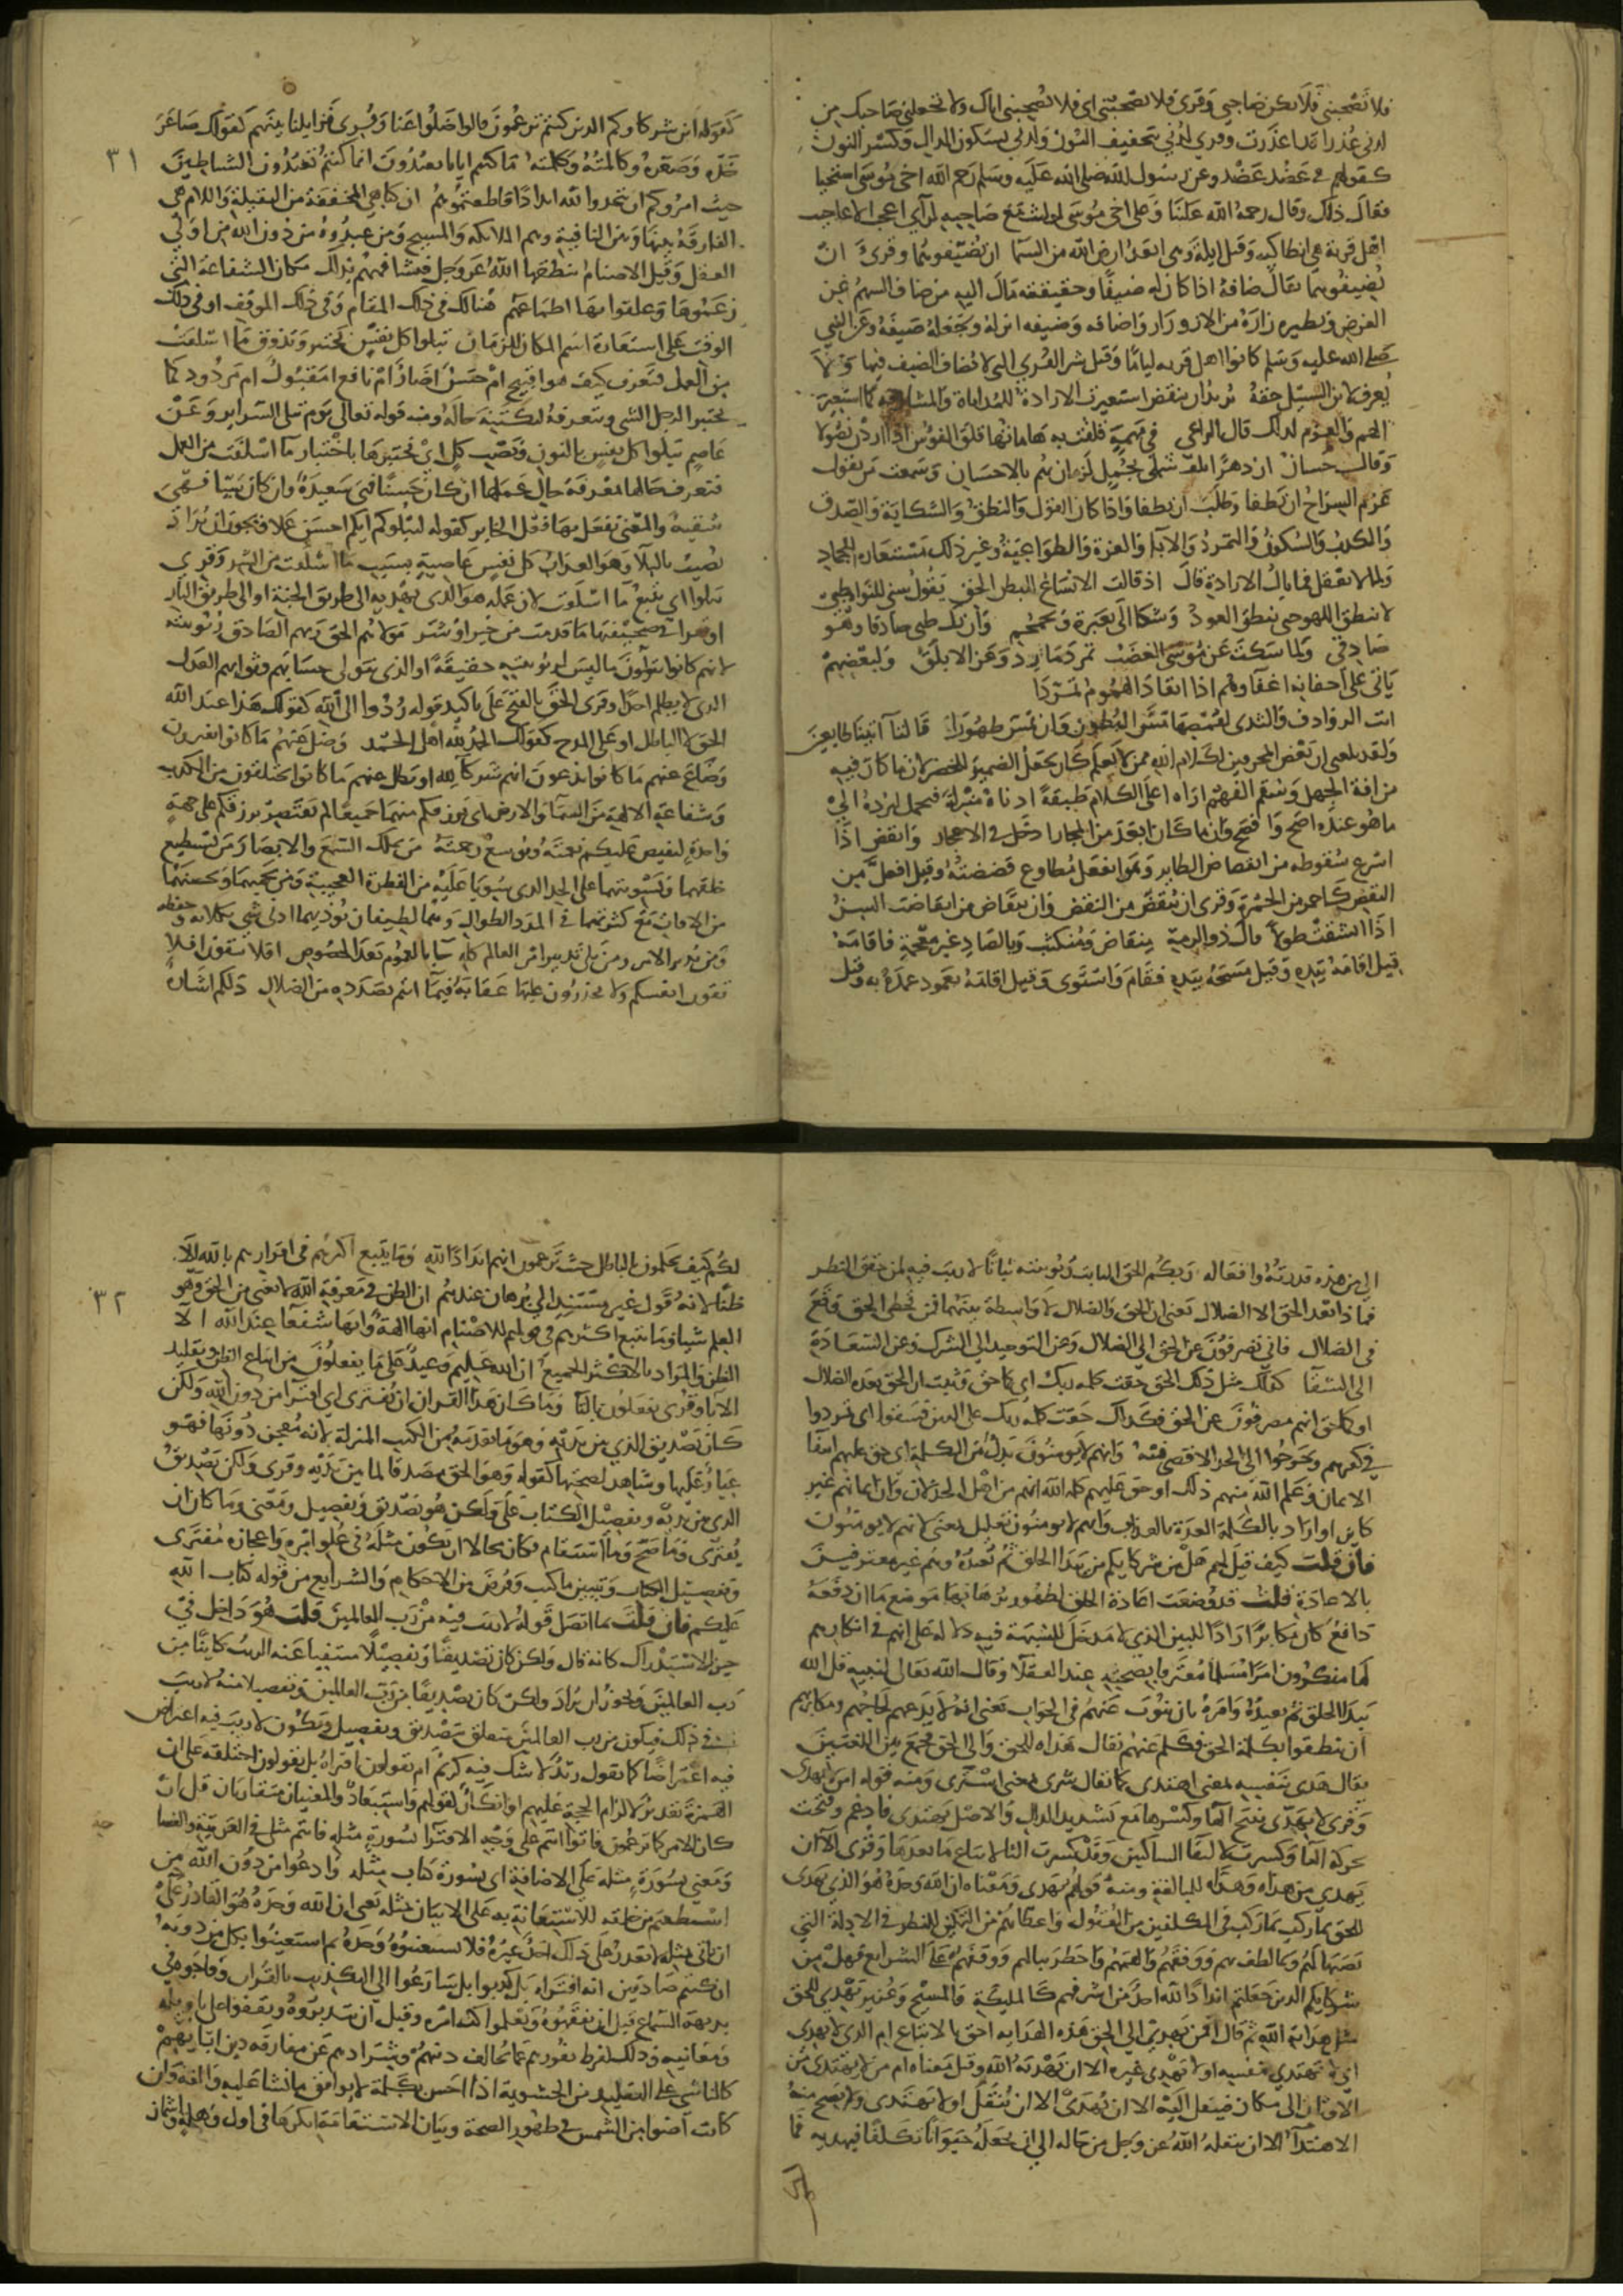 فلا تصحبني فلا تكن صاحبي وقرئ فلا تصحبنّي اي فلا تصحبني اياك ولا تجعلني صاحبك من
لدني عذرا قد اعذرت وقرئ لدني بتخفيف النون ولدني بسكون الدال وكسر النون
كقولهم في عضد عضد وعن رسول الله صلى الله عليه وسلم رحم الله اخي موسى استحيا
فقال ذلك وقال رحمة الله علينا وعلى اخي موسى لو لبث مع صاحبه لراى اعجب الاعاجيب
اهل قرية هي انطاكيه وقيل ايلة وهي ابعد ارض الله من السما ان يضيفوهما وقرئ ان
يضيفوهما يقال ضافه اذا كان له ضيفا وحقيقته مال اليه من ضاف السهم عن
الغرض ونظيره زاره من الازورار واضافه وضيفه انزله وجعله ضيفه وعن النبي
صلى الله عليه وسلم كانوا اهل قريه لياما وقيل شر القرى التي لا يضاف الضيف فيها ولا
يعرف لابن السبيل حقه يريد ان ينقض استعيرت الارادة للمداناة والمشارفه كما استعير
الهم والعزم لذلك قال الراعي في مهمه قلقت به هاماتها قلق الفؤوس اذا اردن نصولا
وقال حسان ان دهرا يلف شملي بجمل لزمان يهم بالاحسان وسمعت من يقول
عزم السراج ان يطفا وطلب ان يطفا واذا كان القول والنطق والشكاية والصدق
والكذب والسكون والتمرد والاباء والعزة والطواعية وغير ذلك مستعاره للجماد
ولما لا يعقل فما بال الارادة قال اذ قالت الانساع للبطن الحق يقول سني للنواة طني
لا ينطق اللهو حتى ينطق العود وشكا الي بعبرة وتحمحم وان يك ظني صادقا وهو
صادقي ولما سكت عن موسى الغضب تمرد مارد وعز الابلق ولبعضهم
يابى على اجفانه اغفاوهم اذا انقاد الهموم تمردا
ابت الروادف والثدي لقمصها مس البطون وان تمس ظهورا قالتا اتينا طايعين
ولقد بلغني ان بعض المحرفين لكلام الله ممن لا يعلم كان يجعل الضمير للخضر لان ما كان فيه
من افة الجهل وسقم الفهم اراه اعلى الكلام طبقة ادناه منزلة فتمحل ليرده الى
ما هو عنده اصح وافصح وان ما كان ابعد من المجاز ادخل في الاعجاز وانقض اذا
اسرع سقوطه من انقضاض الطاير وهو انفعل مطاوع قضضته وقيل افعل من
النقض كاحمر من الحمرة وقرئ ان ينقض من النقض وان ينقاض من انقاضت السن
اذا انشقت طولا قال ذو الرمة منقاض ومنكثب وبالصاد غير معجمة فاقامه
قيل اقامه بيده وقيل مسحه بيده فقام واستوى وقيل اقامه بعمود عمده به وقيل
كقوله اين شركاوكم الذين كنتم تزعمون قالوا ضلوا عنا وقرئ فزايلنا بينهم كقولك صاعر
خده وصعره وكالمته وكلمته ما كنتم ايانا تعبدون انما كنتم تعبدون الشياطين
٣١
حيث امروكم ان تتخذوا لله اندادا فاطعتموهم ان كنا هي المخففة من الثقيلة واللام هي
الفارقة بينها وبين النافية وهم الملائكه والمسيح ومن عبدوه من دون الله من اولي
العقل وقيل الاصنام ينطقها الله عز وجل فتشافههم بذلك مكان الشفاعة التي
زعموها وعلقوا بها اطماعهم هنالك في ذلك المقام وفي ذلك الموقف او في ذلك
الوقت على استعارة اسم المكان للزمان تبلوا كل نفس تختبر وتذوق ما اسلفت
من العمل فتعرف كيف هو اقبيح ام حسن اضار ام نافع امقبول ام مردود كما
يختبر الرجل الشي ويتعرفه ليكتنه حاله ومنه قوله تعالى يوم تبلى السراير وعن
عاصم نبلوا كل نفس بالنون ونصب كل اي نختبرها باختبار ما اسلفت من العمل
فنعرف حالها بمعرفة حال عملها ان كان حسنا فهي سعيدة وان كان سيئا فهي
شقية والمعنى نفعل بها فعل الخابر كقوله ليبلوكم ايكم احسن عملا ويجوز ان يراد
نصيب بالبلاء وهو العذاب كل نفس عاصية بسبب ما اسلفت من الشر وقرئ
تتلوا اي تتبع ما اسلفت لان عمله هو الذي يهديه الى طريق الجنة او الى طريق النار
او تقرا في صحيفتها ما قدمت من خير او شر مولاهم الحق ربهم الصادق ربوبيته
لانهم كانوا يتولون ما ليس لربوبيته حقيقة او الذي يتولى حسابهم وثوابهم العدل
الذي لا يظلم احدا وقرئ الحق بالفتح على تاكيد قوله ردوا الى الله كقولك هذا عبد الله
الحق لا الباطل او على المدح كقولك الحمد لله اهل الحمد وضل عنهم ما كانوا يفترون
وضاع عنهم ما كانوا يدعون انهم شركا لله او بطل عنهم ما كانوا يختلقون من الكذب
وشفاعة الالهة من السما والارض اي يرزقكم منهما جميعا لم يقتصر برزقكم على جهة
واحدة ليفيض عليكم نعمته ويوسع رحمته من يملك السمع والابصار من يستطيع
خلقهما وتسويتهما على الحد الذي سويا عليه من الفطرة العجيبة ومن يحميهما ويحصنهما
من الافات مع كثرتهما في المدد الطوال وهما لطيفان يوذيهما ادنى شي بكلائه وحفظه
ومن يدبر الامر ومن يلي تدبير امر العالم كله جا بالعموم بعد الخصوص افلا تتقون افلا
تقون انفسكم ولا تحذرون عليها عقابه فيما انتم بصدده من الضلال ذلكم اشارة
الى من هذه قدرته وافعاله ربكم الحق الثابت ربوبيته ثباتا لا ريب فيه لمن حقق النظر
فماذا بعد الحق الا الضلال يعني ان الحق والضلال لا واسطة بينهما فمن تخطى الحق وقع
في الضلال فانى تصرفون عن الحق الى الضلال وعن التوحيد الى الشرك وعن السعادة
الى الشقا كذلك مثل ذلك الحق حقت كلمه ربك اي كما حق وثبت ان الحق بعده الضلال
او كما حق انهم مصرفون عن الحق فكذلك حقت كلمة ربك على الذين فسقوا اي تمردوا
في كفرهم وخرجوا الى الحد الاقصى فيه وانهم لا يومنون بدل من الكلمة اي حق عليهم انتفا
الايمان وعلم الله منهم ذلك او حق عليهم كلمة الله انهم من اهل الخذلان وان ايمانهم غير
كاين او اراد بالكلمة العدة بالعذاب وانهم لا يومنون تعليل بمعنى لانهم لا يومنون
فان قلت كيف قيل لهم هل من شركايكم من يبدا الخلق ثم يعيده وهم غير معترفين
بالاعادة قلت قد وضعت اعادة الخلق لظهور برهانها موضع ما ان دفعه
دافع كان مكابرا رادا للبين الذي لا مدخل للشبهة فيه دلالة على انهم في انكارهم
لها منكرون امرا مسلما معترفا بصحته عند العقلا وقال الله تعالى لنبيه قل الله
يبدا الخلق ثم يعيده وامره بان ينوب عنهم في الجواب يعني انه لا يدعهم لجاجهم ومكابرتهم
ان ينطقوا بكلمة الحق فكلم عنهم يقال هداه للحق والى الحق فجمع بين اللغتين
يقال هدى بنفسه بمعنى اهتدى كما يقال شرى بمعنى اشترى ومنه قوله امن لا يهدي
وقرئ لا يهدي بفتح الها وكسرها مع تشديد الدال والاصل يهتدي فادغم وفتحت
بحركة التا وكسرت لالتقا الساكنين وقد كسرت اليا لاتباع ما بعدها وقرئ الا ان
يهدي من هداه وهداه للمبالغة ومنه قولهم تهدى ومعناه ان الله وحده هو الذي يهدي
للحق بما ركب في المكلفين من العقول واعطاهم من التمكين للنظر في الادلة التي
نصبها لهم وبما لطف بهم ووفقهم والهمهم واخطر ببالهم ووقفهم على الشرايع فهل من
شركايكم الذين جعلتم اندادا لله احد من اشرفهم كالمليكة والمسيح وعزير يهدي للحق
مثل هداية الله ثم قال افمن يهدي الى الحق هذه الهداية احق بالاتباع ام الذي لا يهدي
اي لا يهتدي بنفسه او لا يهدي غيره الا ان يهديه الله وقيل معناه ام من لا يهتدي من
الاوثان الى مكان فينتقل اليه الا ان يهدى الا ان ينقل او لا يهتدي ولا يصح منه
الاهتدا الا ان ينقله الله عز وجل من حاله الى ان يجعله حيوانا مكلفا فيهديه فما
لكم كيف تحكمون بالباطل حيث تزعمون انهم انداد الله وما يتبع اكثرهم في اقرارهم بالله الا
ظنا لانه قول غير مستند الى برهان عندهم ان الظن في معرفة الله لا يغني من الحق وهو
٣٢
العلم شيا وقيل وما يتبع اكثرهم في قولهم للاصنام انها الهة وانها شفعا عند الله الا
الظن والمراد بالاكثر الجميع ان الله عليم وعيد على ما يفعلون من اتباع الظن وتقليد
الابا وقرئ تفعلون بالتا وما كان هذا القران ان يفترى اي افترا من دون الله ولكن
كان تصديق الذي بين يديه وهو ما تقدمه من الكتب المنزلة لانه معجز دونها فهو
عيار عليها وشاهد لصحتها كقوله وهو الحق مصدقا لما بين يديه وقرئ ولكن تصديق
الذي بين يديه وتفصيل الكتاب على ولكن هو تصديق وتفصيل ومعنى وما كان ان
يفترى وما صح وما استقام وكان محالا ان يكون مثله في علو امره واعجازه مفترى
وتفصيل الكتاب وتبيين ما كتب وفرض من الاحكام والشرايع من قوله كتاب الله
عليكم فان قلت بما اتصل قوله لا ريب فيه من رب العالمين قلت هو داخل في
حيز الاستدراك كانه قال ولكن كان تصديقا وتفصيلا منتفيا عنه الريب كاينا من
رب العالمين ويجوز ان يراد ولكن كان تصديقا من رب العالمين وتفصيلا منه لا ريب
في ذلك فيكون من رب العالمين متعلق بتصديق وتفصيل ويكون لا ريب فيه اعتراض
فيه اعتراضا كما تقول زيد لا شك فيه كريم ام يقولون افتراه بل يقولون اختلقه على ان
الهمزة تقدير لالزام الحجة عليهم او انكار لقولهم واستبعاد والمعنيان متقاربان قل ان
كان الامر كما تزعمون فاتوا انتم على وجه الافترا بسورة مثله فانتم مثلي في العربية والفصا
حه
ومعنى بسورة مثله على الاضافة اي بسورة كتاب مثله وادعوا من دون الله من
استطعتم من خلقه للاستعانة به على الاتيان بمثله يعني ان الله وحده هو القادر على
ان ياتي بمثله لا يقدر على ذلك احد غيره فلا تستعينوه وحده ثم استعينوا بكل من دونه
ان كنتم صادقين انه افتراه بل كذبوا بل سارعوا الى التكذيب بالقران وفاجوه في
بديهة السماع قبل ان يفقهوه ويعلموا كنه امره وقبل ان يتدبروه ويقفوا على تاويله
ومعانيه وذلك لفرط نفورهم عما يخالف دينهم وشرادهم عن مفارقة دين ابايهم
كالناشي على التقليد من الحشوية اذا احس بكلمة لا يوافق ما نشا عليه والفه وان
كانت اضوا من الشمس في ظهور الصحة وبيان الاستقامة انكرها في اول وهلة واشماز